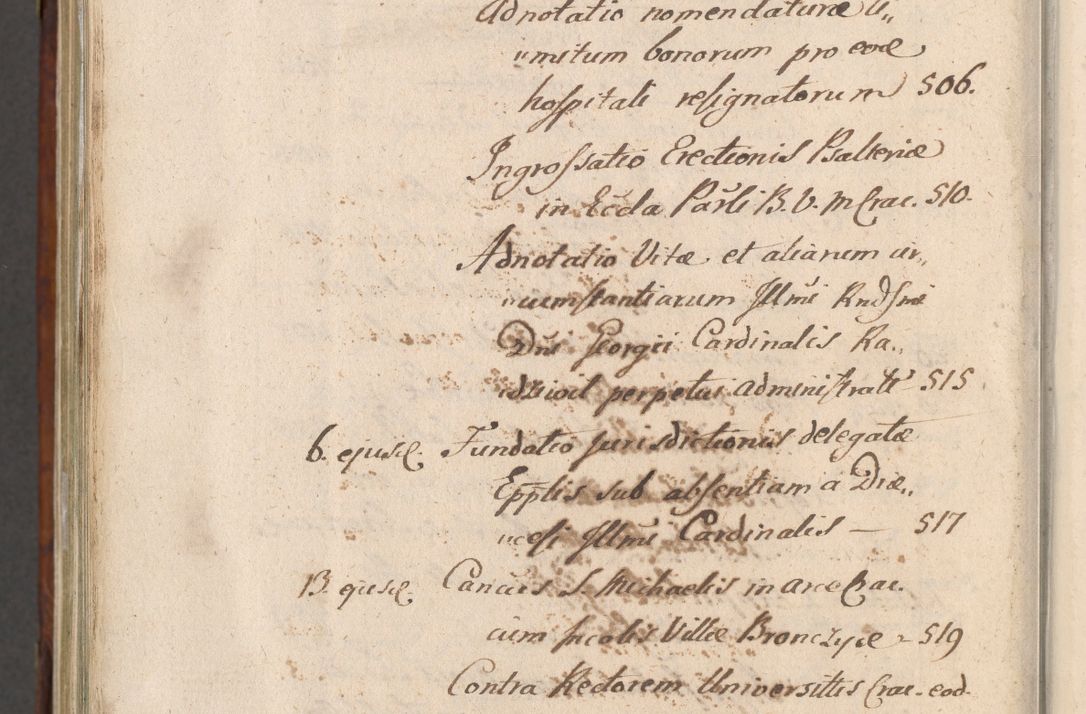 Adnotatio nomendaturæ li„
„mitum bonorum pro eod
hospitali resignatorum 506.
Ingrossatio Erectionis Psalteriæ
in Eccla Parli B. V. M Crac. 510.
Adnotatio Vitæ et aliarum cir„
„cumstantiarum Illmi Rndsmi
Dni Georgii Cardinalis Ra„
„dzivil perpetui administratt 515
6. ejusd. Fundatio jurisdictionis delegatæ
Epplis sub absentiam a Diæ„
„cesi Illmi Cardinalis — 517
13. ejusd. Cancus S. Michaelis in arce Crac.
cum Incolis Villæ Bronczyce - 519
Contra Rectorem Universittis Crac. eod.